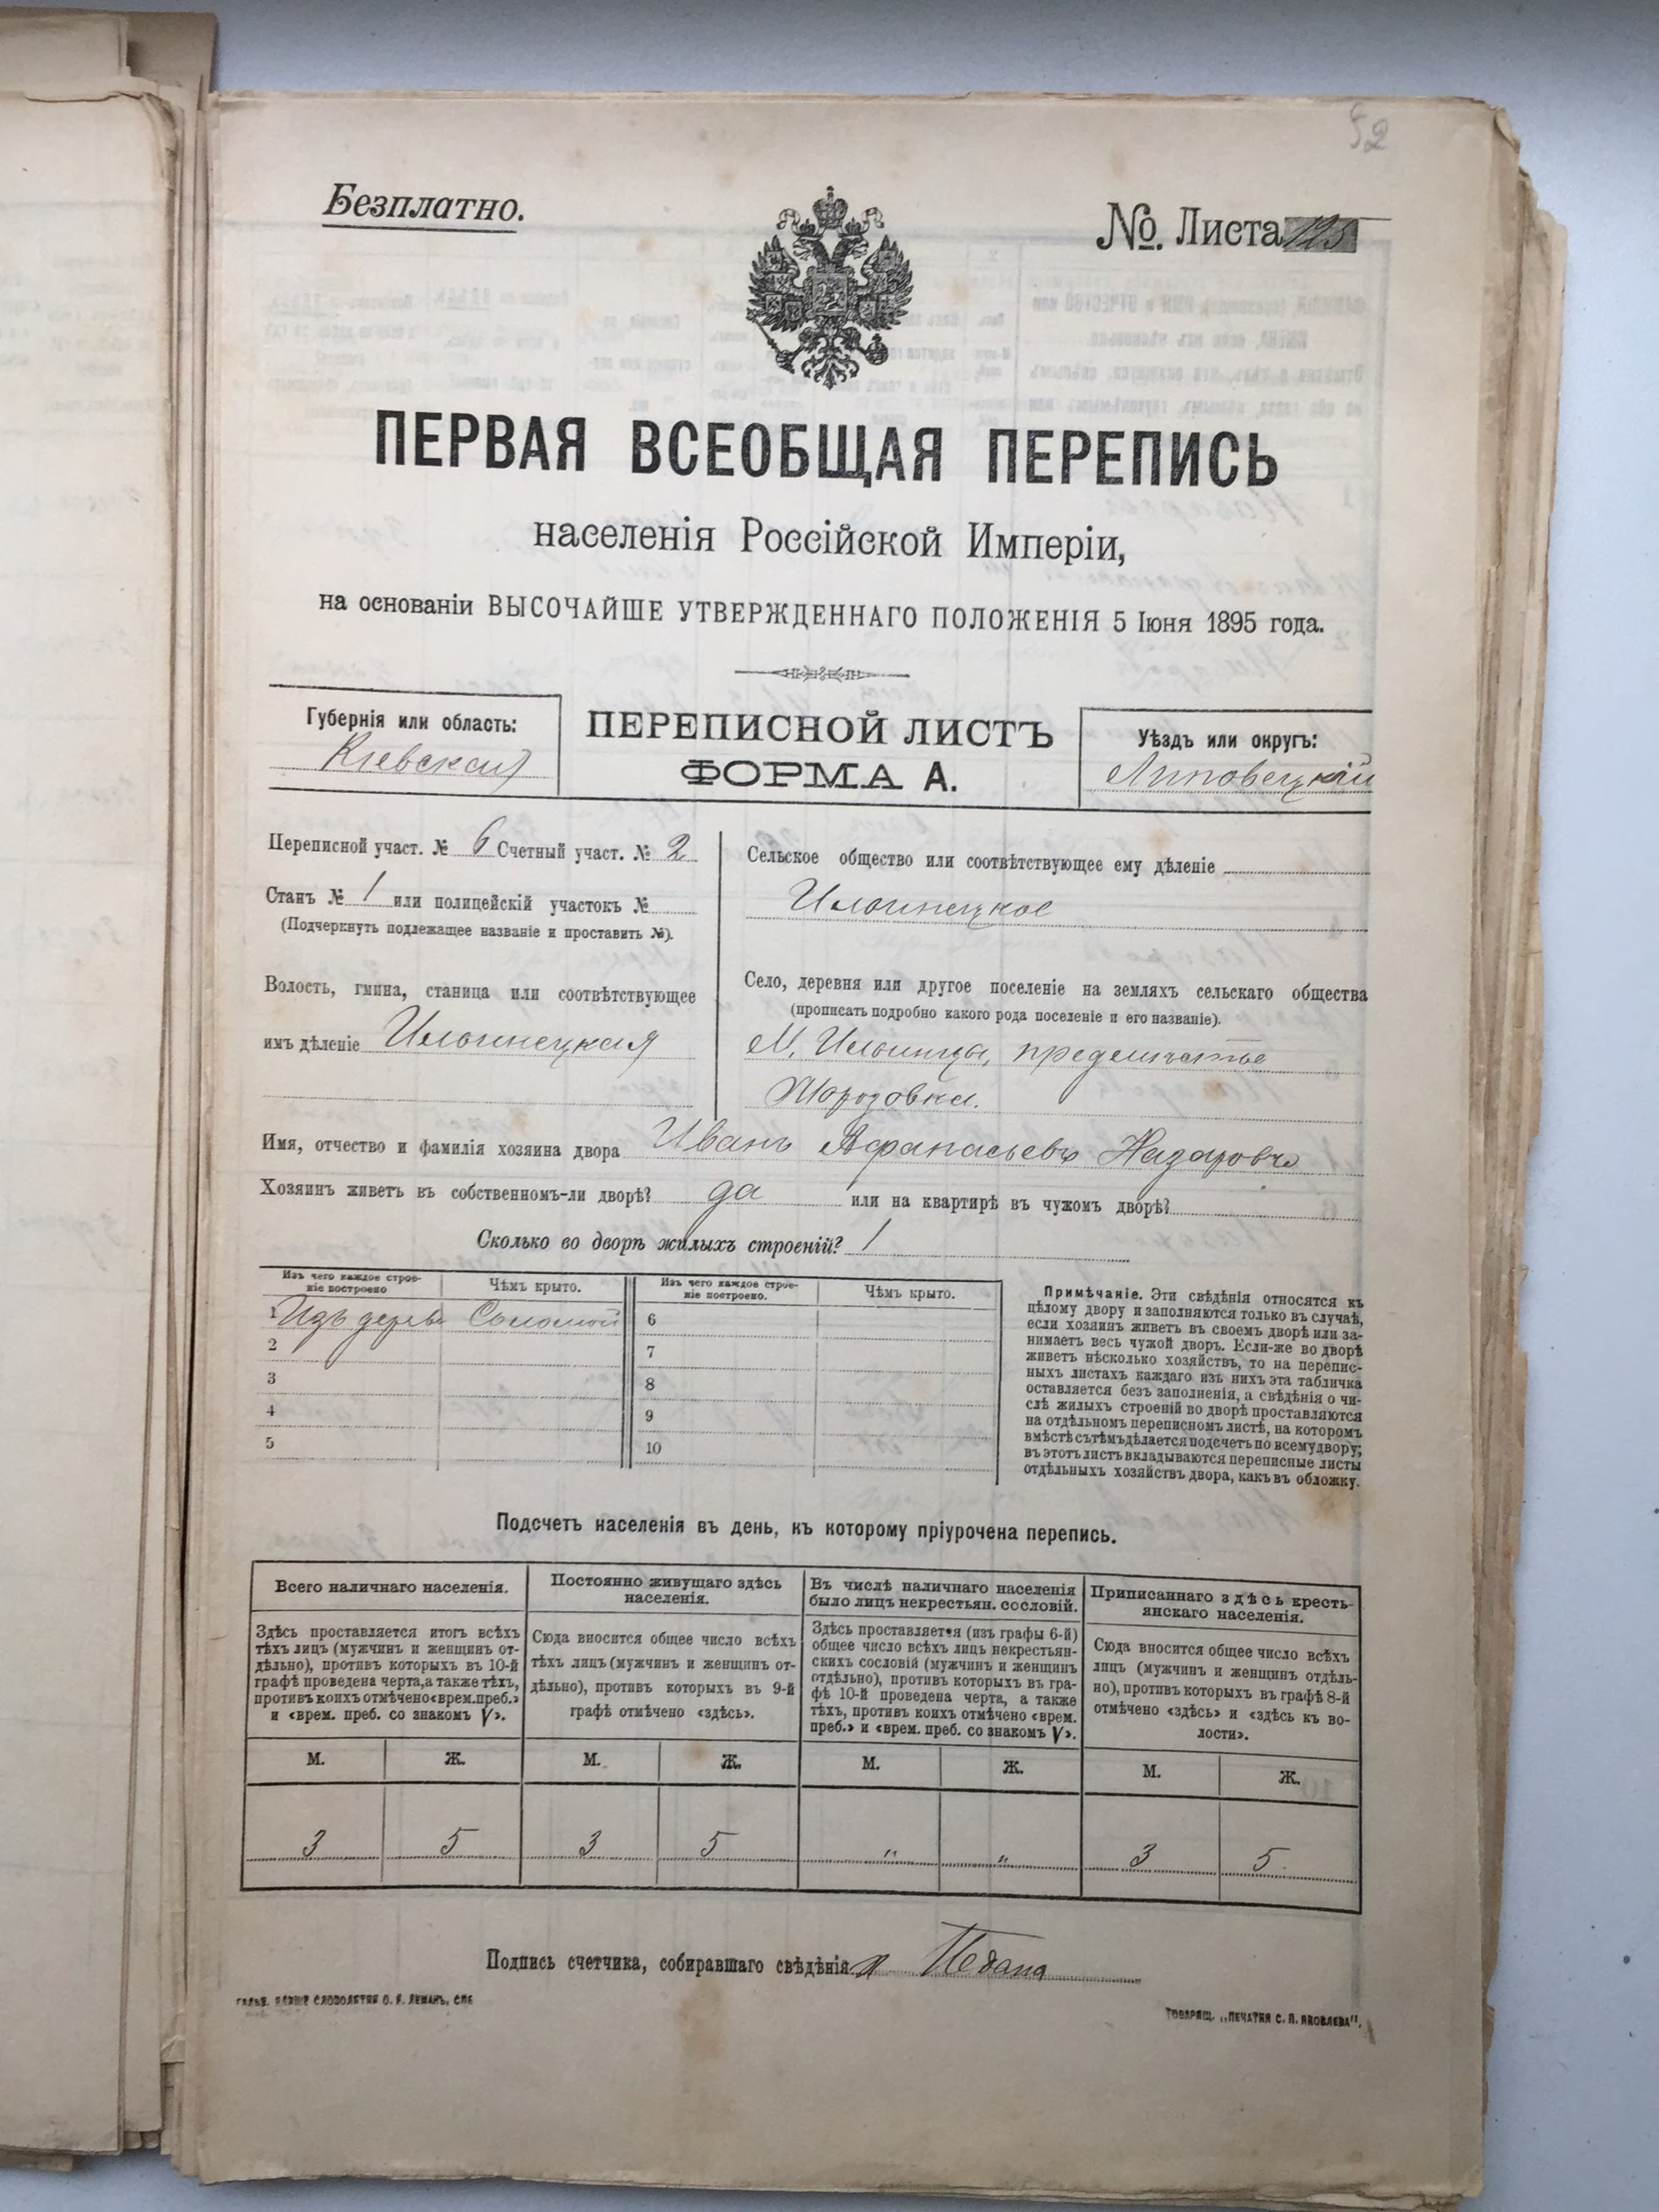 52
Безплатно.
№. Листа 125
ПЕРВАЯ ВСЕОБЩАЯ ПЕРЕПИСЬ
населенія Россійской Имперіи,
на основаніи ВЫСОЧАЙШЕ УТВЕРЖДЕННАГО ПОЛОЖЕНІЯ 5 Іюня 1895 года.
Губернія или область:
Кіевская
ПЕРЕПИСНОЙ ЛИСТЪ
ФОРМА А.
Уѣздъ или округъ:
Липовецкій
Переписной участ. № 6 Счетный участ. № 2
Станъ № 1 или полицейскій участокъ №
(Подчеркнуть подлежащее названіе и проставить №).
Волость, гмина, станица или соотвѣтствующее
имъ дѣленіе Ильинецкая
Сельское общество или соотвѣтствующее ему дѣленіе
Ильинецкое
Село, деревня или другое поселеніе на земляхъ сельскаго общества
(прописать подробно какого рода поселеніе и его названіе).
М. Ильинцы, предмѣстье
Имя, отчество и фамилія хозяина двора Иванъ Афанасьевъ Назаровъ
Хозяинъ живетъ въ собственномъ-ли дворѣ? да или на квартирѣ въ чужомъ дворѣ?
Сколько во дворѣ жилыхъ строеній? 1
Изъ чего каждое строе-
ніе построено
Чѣмъ крыто.
Изъ чего каждое строе-
ніе построено.
Чѣмъ крыто.
1 Изъ дерева Соломой
2
3
4
5
6
7
8
9
10
Примѣчаніе. Эти свѣдѣнія относятся къ
цѣлому двору и заполняются только въ случаѣ,
если хозяинъ живетъ въ своемъ дворѣ или за-
нимаетъ весь чужой дворъ. Если-же во дворѣ
живетъ нѣсколько хозяйствъ, то на перепис-
ныхъ листахъ каждаго изъ нихъ эта табличка
оставляется безъ заполненія, а свѣдѣнія о чи-
слѣ жилыхъ строеній во дворѣ проставляются
на отдѣльномъ переписномъ листѣ, на которомъ
вмѣстѣ съ тѣмъ дѣлается подсчетъ по всему двору;
въ этотъ листъ вкладываются переписные листы
отдѣльныхъ хозяйствъ двора, какъ въ обложку.
Подсчетъ населенія въ день, къ которому пріурочена перепись.
Всего наличнаго населенія.
Здѣсь проставляется итогъ всѣхъ
тѣхъ лицъ (мужчинъ и женщинъ от-
дѣльно), противъ которыхъ въ 10-й
графѣ проведена черта, а также тѣхъ,
противъ коихъ отмѣчено «врем. преб.»
и «врем. преб. со знакомъ V».
Постоянно живущаго здѣсь
населенія.
Сюда вносится общее число всѣхъ
тѣхъ лицъ (мужчинъ и женщинъ от-
дѣльно), противъ которыхъ въ 9-й
графѣ отмѣчено «здѣсь».
Въ числѣ наличнаго населенія
было лицъ некрестьян. сословій.
Здѣсь проставляется (изъ графы 6-й)
общее число всѣхъ лицъ некрестьян-
скихъ сословій (мужчинъ и женщинъ
отдѣльно), противъ которыхъ въ гра-
фѣ 10-й проведена черта, а также
тѣхъ, противъ коихъ отмѣчено «врем.
преб.» и «врем. преб. со знакомъ V».
Приписаннаго здѣсь кресть-
янскаго населенія.
Сюда вносится общее число всѣхъ
лицъ (мужчинъ и женщинъ отдѣль-
но), противъ которыхъ въ графѣ 8-й
отмѣчено «здѣсь» и «здѣсь къ во-
лости».
М. Ж. М. Ж. М. Ж. М. Ж.
3 5 3 5 „ „ 3 5
Подпись счетчика, собиравшаго свѣдѣнія
СЛОВОЛИТНЯ О. І. ЛЕМАНЪ, СПБ
ТОВАРИЩ. „ПЕЧАТНЯ С. П. ЯКОВЛЕВА".